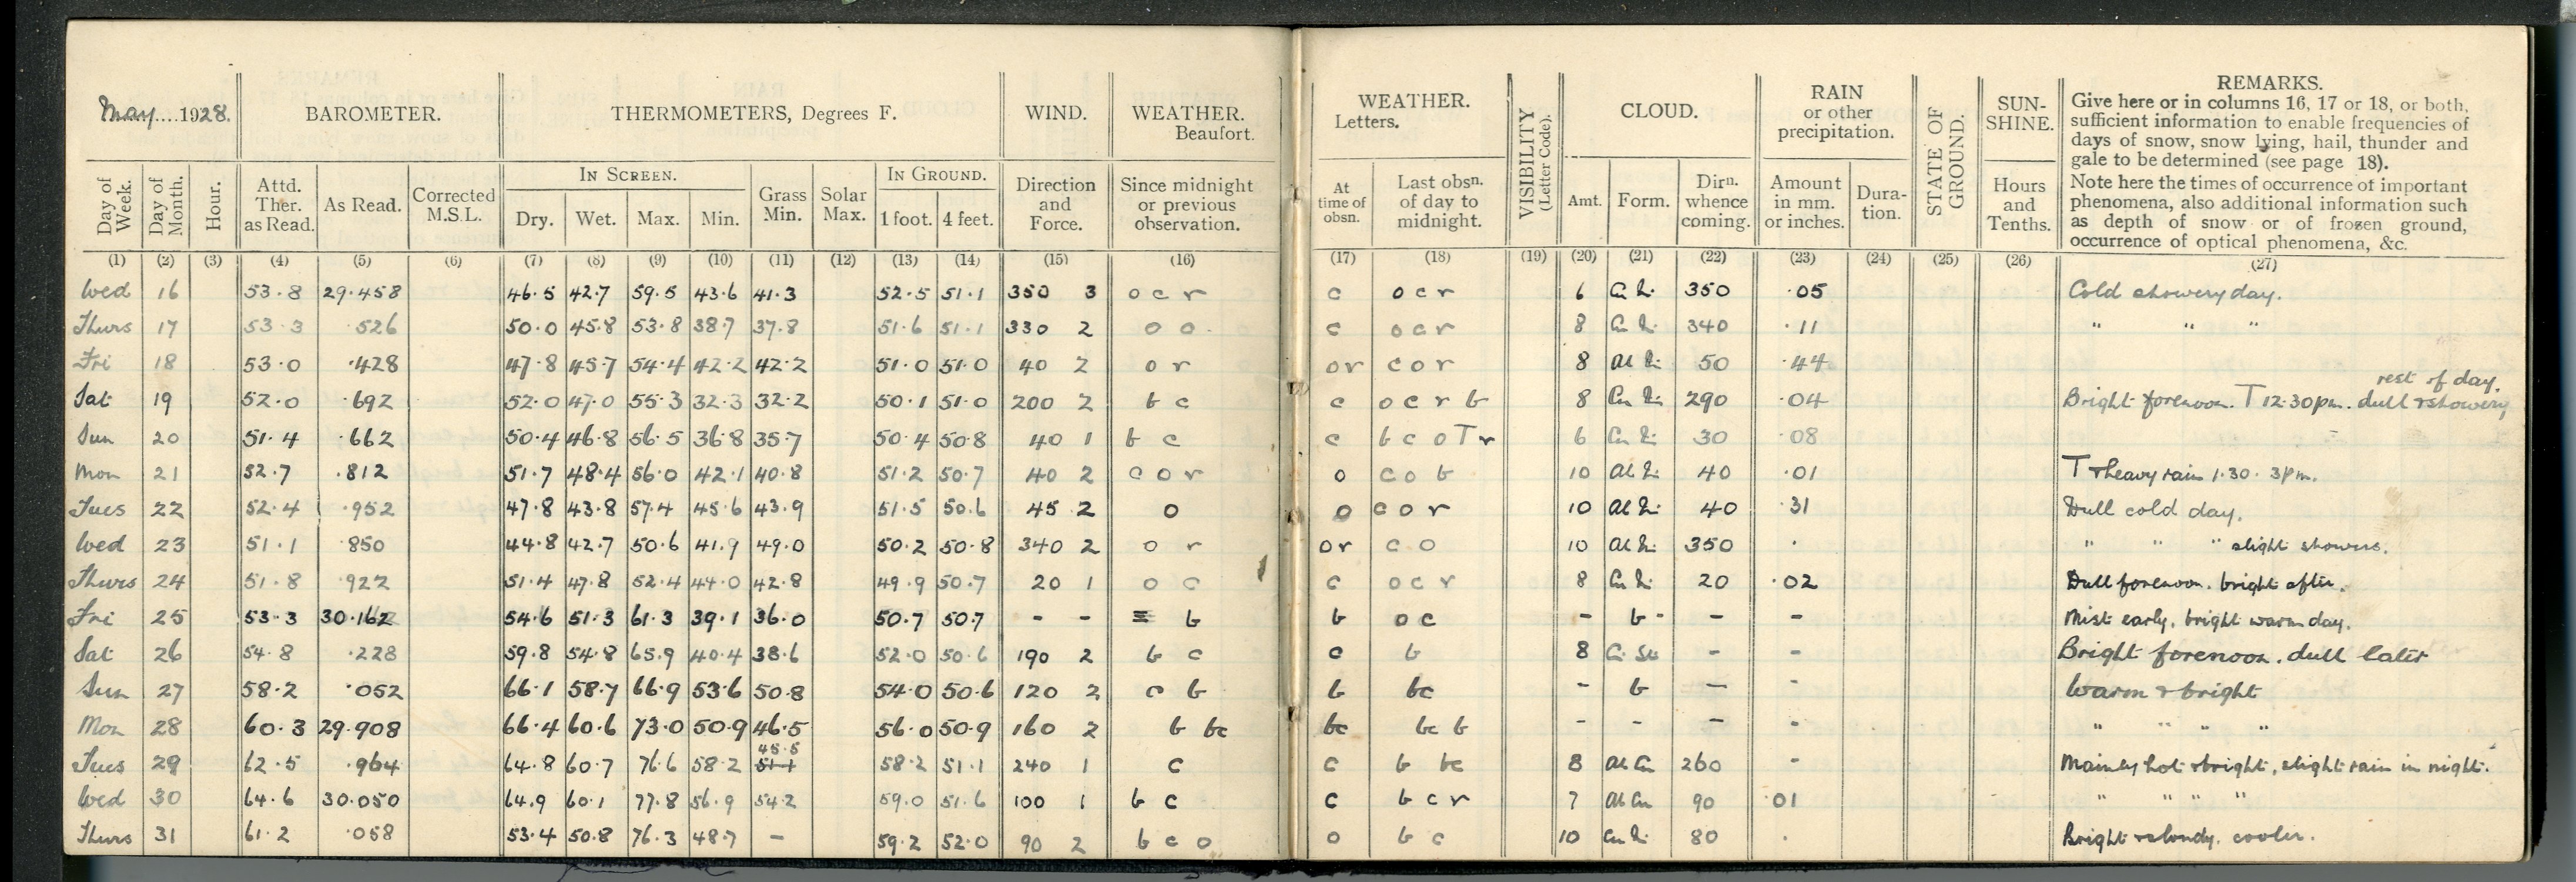 May....1928.
BAROMETER.
THERMOMETERS, Degrees F.
WIND.
WEATHER.
Beaufort.
WEATHER.
Letters.
VISIBILITY
(Letter Code).
CLOUD.
RAIN
or other
precipitation.
STATE OF
GROUND.
SUN-
SHINE.
REMARKS.
Give here or in columns 16, 17 or 18, or both,
sufficient information to enable frequencies of
days of snow, snow lying, hail, thunder and
gale to be determined (see page 18).
Note here the times of occurrence of important
phenomena, also additional information such
as depth of snow or of frozen ground,
occurrence of optical phenomena, &c.
Day of Week.
Day of Month.
Hour.
Attd. Ther. as Read.
As Read.
Corrected M.S.L.
IN SCREEN.
Dry. Wet. Max. Min.
Grass Min.
Solar Max.
IN GROUND.
1 foot. 4 feet.
Direction and Force.
Since midnight or previous observation.
At time of obsn.
Last obsn. of day to midnight.
Amt. Form. Dirn. whence coming.
Amount in mm. or inches.
Dura- tion.
Hours and Tenths.
(1) (2) (3) (4) (5) (6) (7) (8) (9) (10) (11) (12) (13) (14) (15) (16) (17) (18) (19) (20) (21) (22) (23) (24) (25) (26) (27)
Wed 16 53.8 29.458 46.5 42.7 59.5 43.6 41.3 52.5 51.1 350 3 o c r c o c r 6 Cu Ni 350 .05 Cold showery day.
Thurs 17 53.3 .526 50.0 45.8 53.8 38.7 37.8 51.6 51.1 330 2 o o c o c r 8 Cu Ni 340 .11 " " "
Fri 18 53.0 .428 47.8 45.7 54.4 42.2 42.2 51.0 51.0 40 2 o r or c o r 8 Al Ni 50 .44
rest of day.
Sat 19 52.0 .692 52.0 47.0 55.3 32.3 32.2 50.1 51.0 200 2 b c c o c r b 8 Cu Ni 290 .04 Bright forenoon. T 12.30pm. dull & showery
Sun 20 51.4 .662 50.4 46.8 56.5 36.8 35.7 50.4 50.8 40 1 b c c b c o T r 6 Cu Ni 30 .08
Mon 21 52.7 .812 51.7 48.4 56.0 42.1 40.8 51.2 50.7 40 2 c o r o c o b 10 Al Ni 40 .01 T & heavy rain 1.30. 3pm.
Tues 22 52.4 .952 47.8 43.8 57.4 45.6 43.9 51.5 50.6 45 2 o o c o r 10 Al Ni 40 .31 Dull cold day.
Wed 23 51.1 .850 44.8 42.7 50.6 41.9 49.0 50.2 50.8 340 2 o r or c o 10 Al Ni 350 . " " " slight showers.
Thurs 24 51.8 .922 51.4 47.8 52.4 44.0 42.8 49.9 50.7 20 1 o c c o c r 8 Cu Ni 20 .02 Dull forenoon. bright after.
Fri 25 53.3 30.162 54.6 51.3 61.3 39.1 36.0 50.7 50.7 - - ≡ b b o c - b - - - Mist early, bright warm day.
Sat 26 54.8 .228 59.8 54.8 65.9 40.4 38.6 52.0 50.6 190 2 b c c b 8 Ci Su - - Bright forenoon. dull later
Sun 27 58.2 .052 66.1 58.7 66.9 53.6 50.8 54.0 50.6 120 2 c b b bc - b - - Warm & bright
Mon 28 60.3 29.908 66.4 60.6 73.0 50.9 46.5 56.0 50.9 160 2 b bc bc bc b - - - - " " " "
45.5
Tues 29 62.5 .964 64.8 60.7 76.6 58.2 51.1 58.2 51.1 240 1 c c b bc 8 Al Cu 260 - Mainly hot & bright, slight rain in night.
Wed 30 64.6 30.050 64.9 60.1 77.8 56.9 54.2 59.0 51.6 100 1 b c c b c r 7 Al Cu 90 .01 " " " "
Thurs 31 61.2 .058 53.4 50.8 76.3 48.7 - 59.2 52.0 90 2 b c o o b c 10 Cu Ni 80 . Bright & cloudy. cooler.